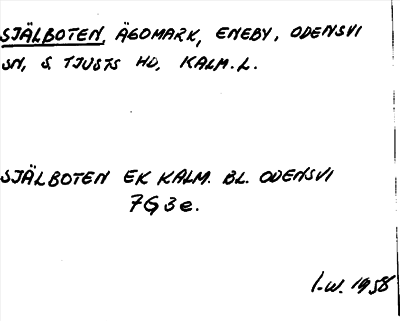 SJÄLBOTEN, ÄGOMARK, ENEBY, ODENSVI
SN, S. TJUSTS HD, KALM. L.
SJÄLBOTEN EK KALM. BL. ODENSVI
7G3e.
I-W. 1958